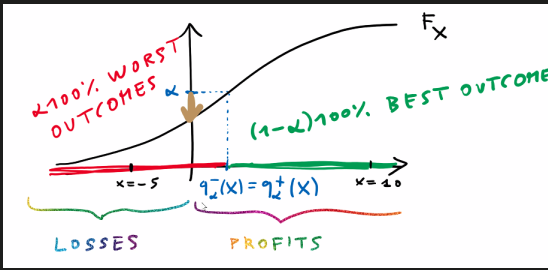 F_X
α100% WORST
OUTCOMES
α
(1-α)100% BEST OUTCOME
x=-5
q_α^-(X) = q_α^+(X)
x=10
LOSSES
PROFITS